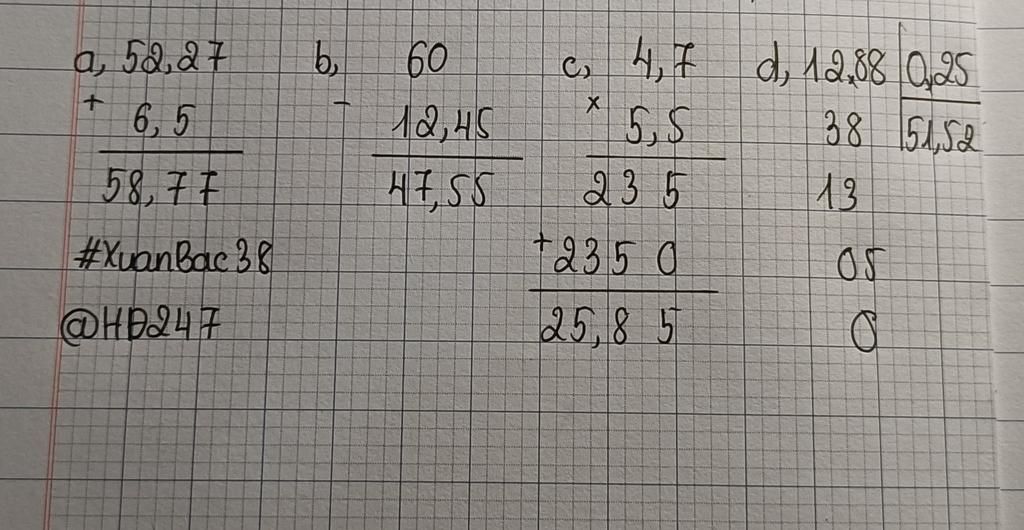 a, 52,27 b, 60 c, 4,7 d, 12,88 0,25
+ 6,5 - 12,45 × 5,5 38 51,52
58,77 47,55 23 5 13
#XuanBac38 +235 0 05
@HD247 25,8 5 0